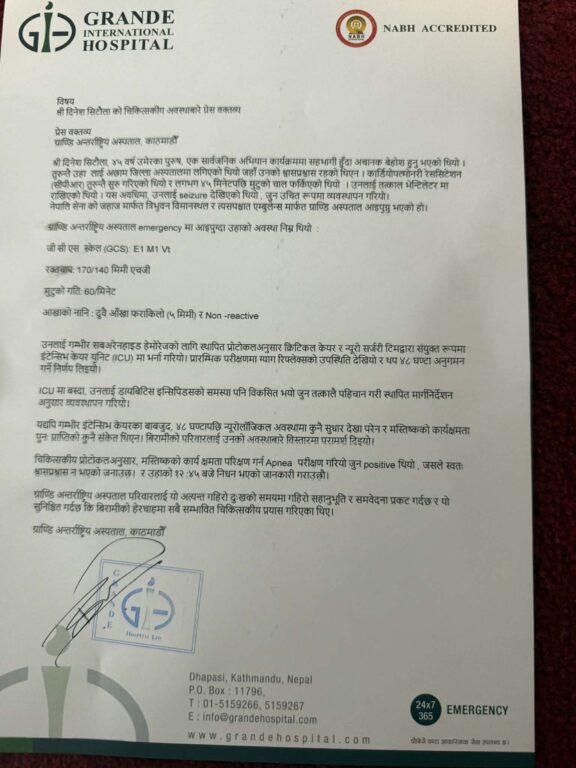 GRANDE
INTERNATIONAL
HOSPITAL
NABH
NABH ACCREDITED
विषय
श्री दिनेश सिटौला को चिकित्सकीय अवस्थाबारे प्रेस वक्तव्य
प्रेस वक्तव्य
ग्राण्डि अन्तर्राष्ट्रिय अस्पताल, काठमाडौँ
श्री दिनेश सिटौला, ४५ वर्ष उमेरका पुरुष, एक सार्वजनिक अभियान कार्यक्रममा सहभागी हुँदा अचानक बेहोश हुनु भएको थियो ।
तुरुन्तै उहा लाई अछाम जिल्ला अस्पतालमा लगिएको थियो जहाँ उनको श्वासप्रश्वास रहको थिएन । कार्डियोपल्मोनरी रेससिटेशन
(सीपीआर) तुरुन्तै सुरु गरिएको थियो र लगभग ४५ मिनेटपछि मुटुको चाल फर्किएको थियो । उनलाई तत्काल भेन्टिलेटर मा
राखिएको थियो । यस अवधिमा, उनलाई seizure देखिएको थियो , जुन उचित रूपमा व्यवस्थापन गरियो।
नेपालि सेना को जहाज मार्फत त्रिभुवन विमानस्थल र त्यसपश्चात एम्बुलेन्स मार्फत ग्राण्डि अस्पताल आइपुग्नु भएको हो।
ग्राण्डि अन्तर्राष्ट्रिय अस्पताल emergency मा आइपुग्दा उहाको अवस्था निम्न थियो :
जी सी एस स्केल (GCS): E1 M1 Vt
रक्तचाप: 170/140 मिमी एचजी
मुटुको गति: 60/मिनेट
आखाको नानि : दुवै आँखा फराकिलो (५ मिमी) र Non -reactive
उनलाई गम्भीर सबअरेनहाइड हेमोरेजको लागि स्थापित प्रोटोकलअनुसार क्रिटिकल केयर र न्यूरो सर्जरी टिमद्वारा संयुक्त रूपमा
इंटेन्सिभ केयर युनिट (ICU) मा भर्ना गरियो। प्रारम्भिक परीक्षणमा ग्याग रिफ्लेक्सको उपस्थिति देखीयो र थप ४८ घण्टा अनुगमन
गर्ने निर्णय लिइयो।
ICU मा बस्दा, उनलाई डायबिटिस इन्सिपिडसको समस्या पनि विकसित भयो जुन तत्कालै पहिचान गरी स्थापित मार्गनिर्देशन
अनुसार व्यवस्थापन गरियो।
यद्यपि गम्भीर इंटेन्सिभ केयरका बाबजुद, ४८ घण्टापछि न्यूरोलॉजिकल अवस्थामा कुनै सुधार देखा परेन र मस्तिष्कको कार्यक्षमता
पुनः प्राप्तिको कुनै संकेत थिएन। बिरामीको परिवारलाई उनको अवस्थाबारे विस्तारमा परामर्श दिइयो।
चिकित्सकीय प्रोटोकलअनुसार, मस्तिष्कको कार्य क्षमता परिक्षण गर्न Apnea परीक्षण गरियो जुन positive थियो , जसले स्वतः
श्वासप्रश्वास न भएको जनाउछ। र उहाको १२ :४५ बजे निधन भएको जानकारी गराउछौ।
ग्राण्डि अन्तर्राष्ट्रिय अस्पताल परिवारलाई यो अत्यन्त गहिरो दुःखको समयमा गहिरो सहानुभूति र समवेदना प्रकट गर्दछ र यो
सुनिश्चित गर्दछ कि बिरामीको हेरचाहमा सबै सम्भावित चिकित्सकीय प्रयास गरिएका थिए।
ग्राण्डि अन्तर्राष्ट्रिय अस्पताल, काठमाडौँ
GRANDE
Hospital Ltd
Dhapasi, Kathmandu, Nepal
P.O. Box : 11796,
T : 01-5159266, 5159267
E : info@grandehospital.com
www.grandehospital.com
24x7
365
EMERGENCY